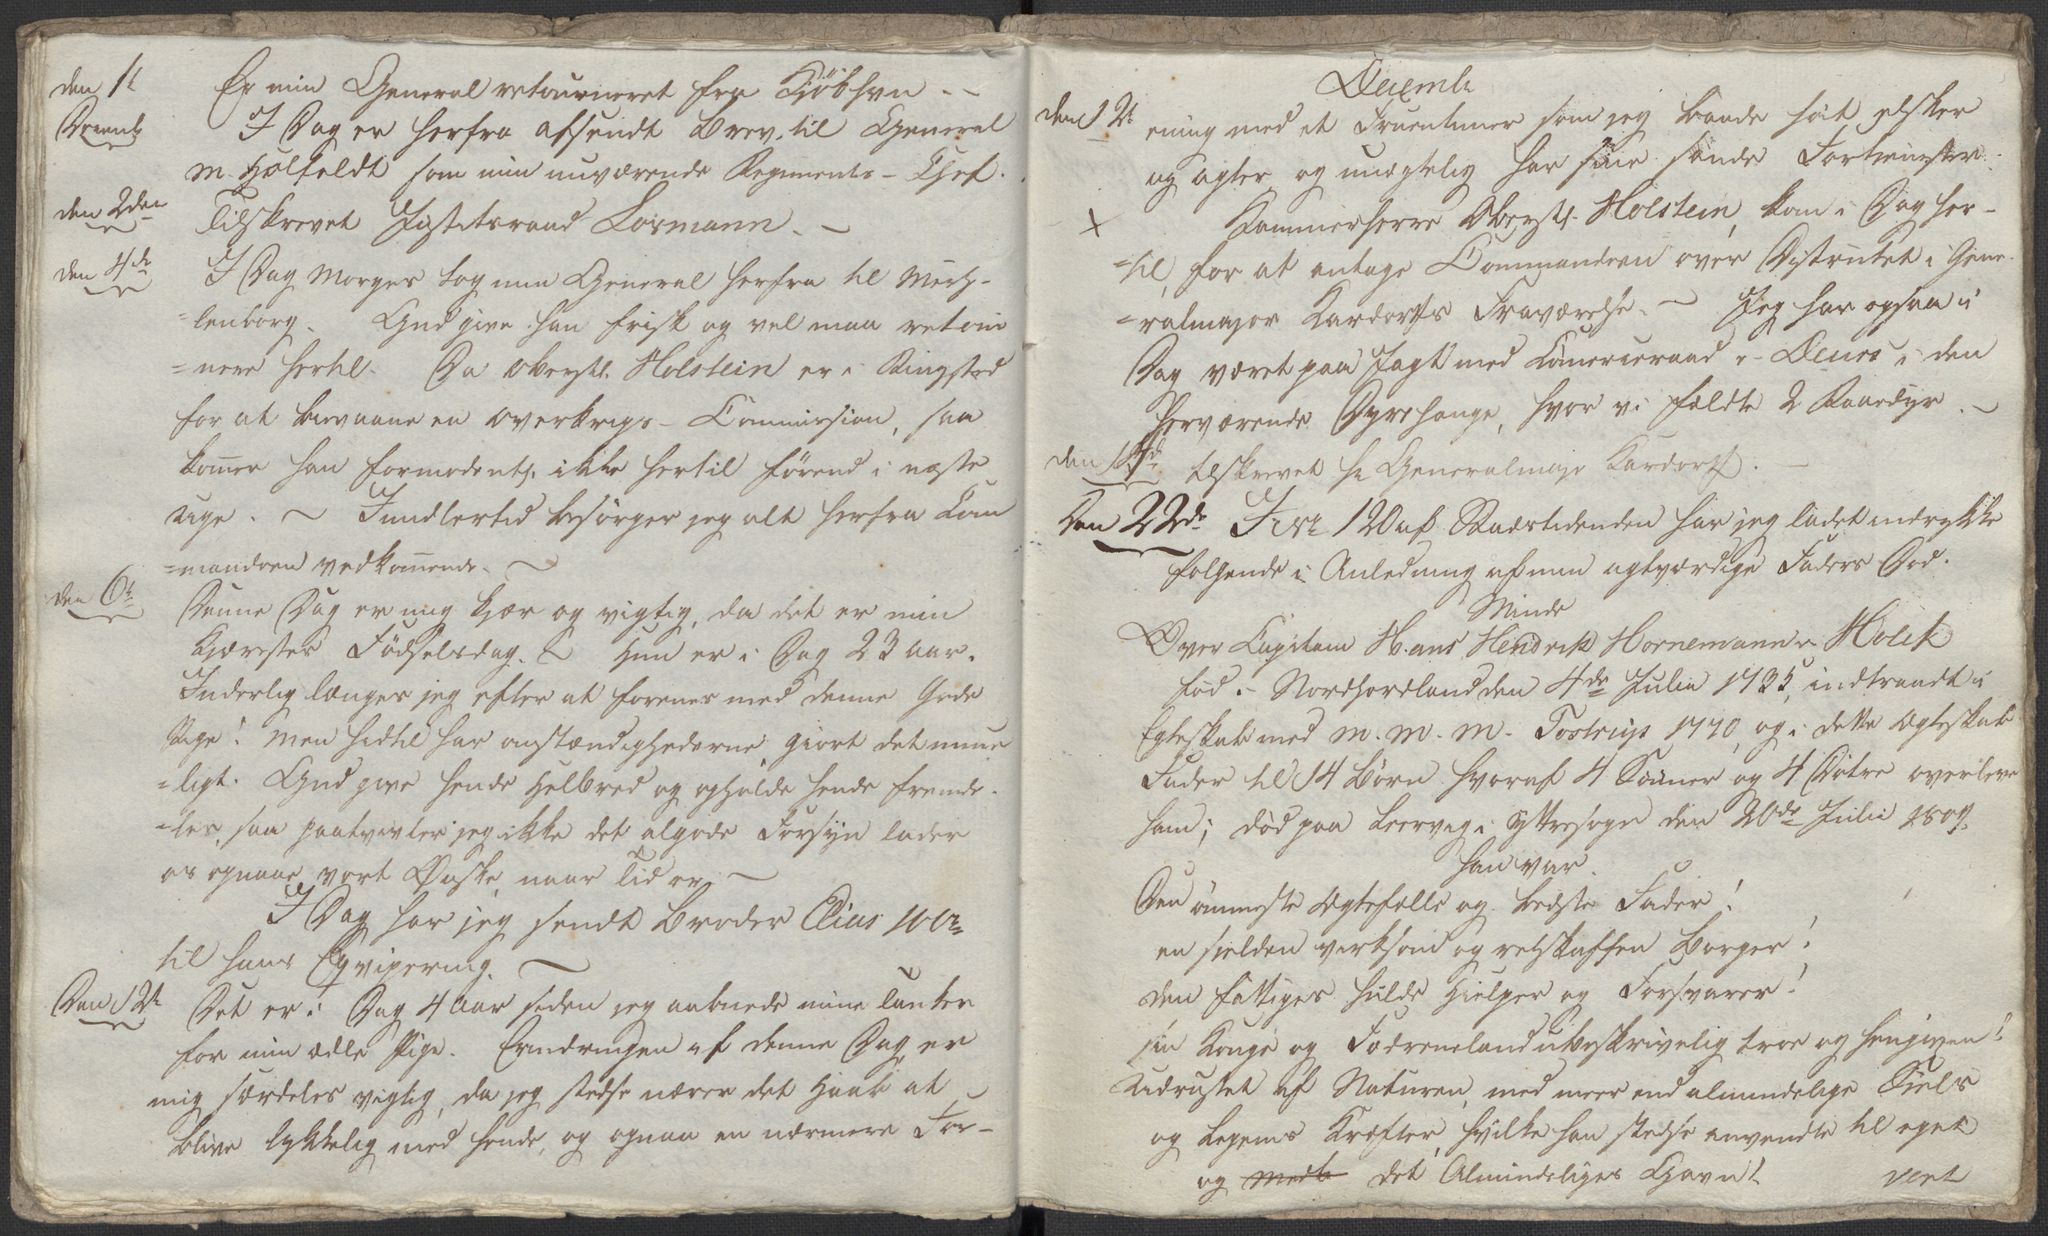 den 1t Er min General retourneret fra Kiöbhvn. -
Decemb I Dag er herfra afsendt Brev til General
m. Holfeldt som min nuværende Regiments-Chef.
den 2den Tilskrevet Justitsraad Lormann. -
den 4de I Dag Morges tog min General herfra til Meck-
=lenborg. Gud give han frisk og vel maa retour
=nere hertil. Da Oberstl. Holstein er i Ringsted
for at bivaane en Overkrigs-Commission, saa
kom̅er han formodentl. ikke hertil förend i næste
Uge. - Imidlertid besörger jeg alt herfra Com
=mandoen vedkom̅ende. -
den 6t Denne Dag er mig kjær og vigtig, da det er min
Kjærestes Födselsdag. - Hun er i Dag 23 Aar.
Inderlig længes jeg efter at forenes med denne Gode
Pige! Men hidtil har omstændighederne giort det umue
=ligt. Gud give hende Helbred og opholde hende fremde-
=les, saa paatvivler jeg ikke det algode Forsyn lader
os opnaae vort Ønske, naar Tid er. -
I Dag har jeg sendt Broder Elias 10
til hans Eqvipering. -
Den 12t Det er i Dag 4 Aar siden jeg aabnede mine Tanker
for min ædle Pige. Erindringen af denne Dag er
mig særdeles vigtig, da jeg stedse nærer det Haab at
blive lykkelig med hende, og opnaa en nærmere For-
Decemb
den 12t ening med et Fruentimer som jeg baade höit elsker
og agter og unægtelig har sine sande Fortienester.
x Kammerherre Oberstl. Holstein, kom i Dag her-
=til, for at antage Commandoen over Distriktet i Gene-
=ralmajor Kardorffs Fraværelse. - Jeg har ogsaa i
Dag været paa Jagt med Com̅erceraad v. Deurs i den
herværende Dyrehauge, hvor vi fældte 2 Raaedyr. -
den tilskrevet Hr Generalmajr Kardorff. -
Den 22de I No 120 af Stadstidenden har jeg ladet indrykke
folgende i Anledning af min agtværdige Faders Död.
Minde
Over Capitain Hans Hendrik Hornemann v. Holck
föd i Nordhordland den 4de Julii 1735, indtraadt i
Egteskab med M. M. M. Tostrup 1770, og i dette Egteskab
Fader til 14 Börn hvoraf 4 Sönner og 4 Dötre overleve
ham; död paa Leervaag i Yttresogn den 20de Julii 1809.
Han var.
Den ömmeste Egtefælle og bedste Fader!
en sielden virksom og retskaffen Borger!
den fattiges hulde Hielper og Forsvarer!
sin Konge og Fædreneland ubeskrivelig troe og hengiven!
Udrustet af Naturen, med meer end almindelige Siels
og Legems Kræfter, hvilke han stedse anvendte til eget
og det Almindeliges Gavn!
vert